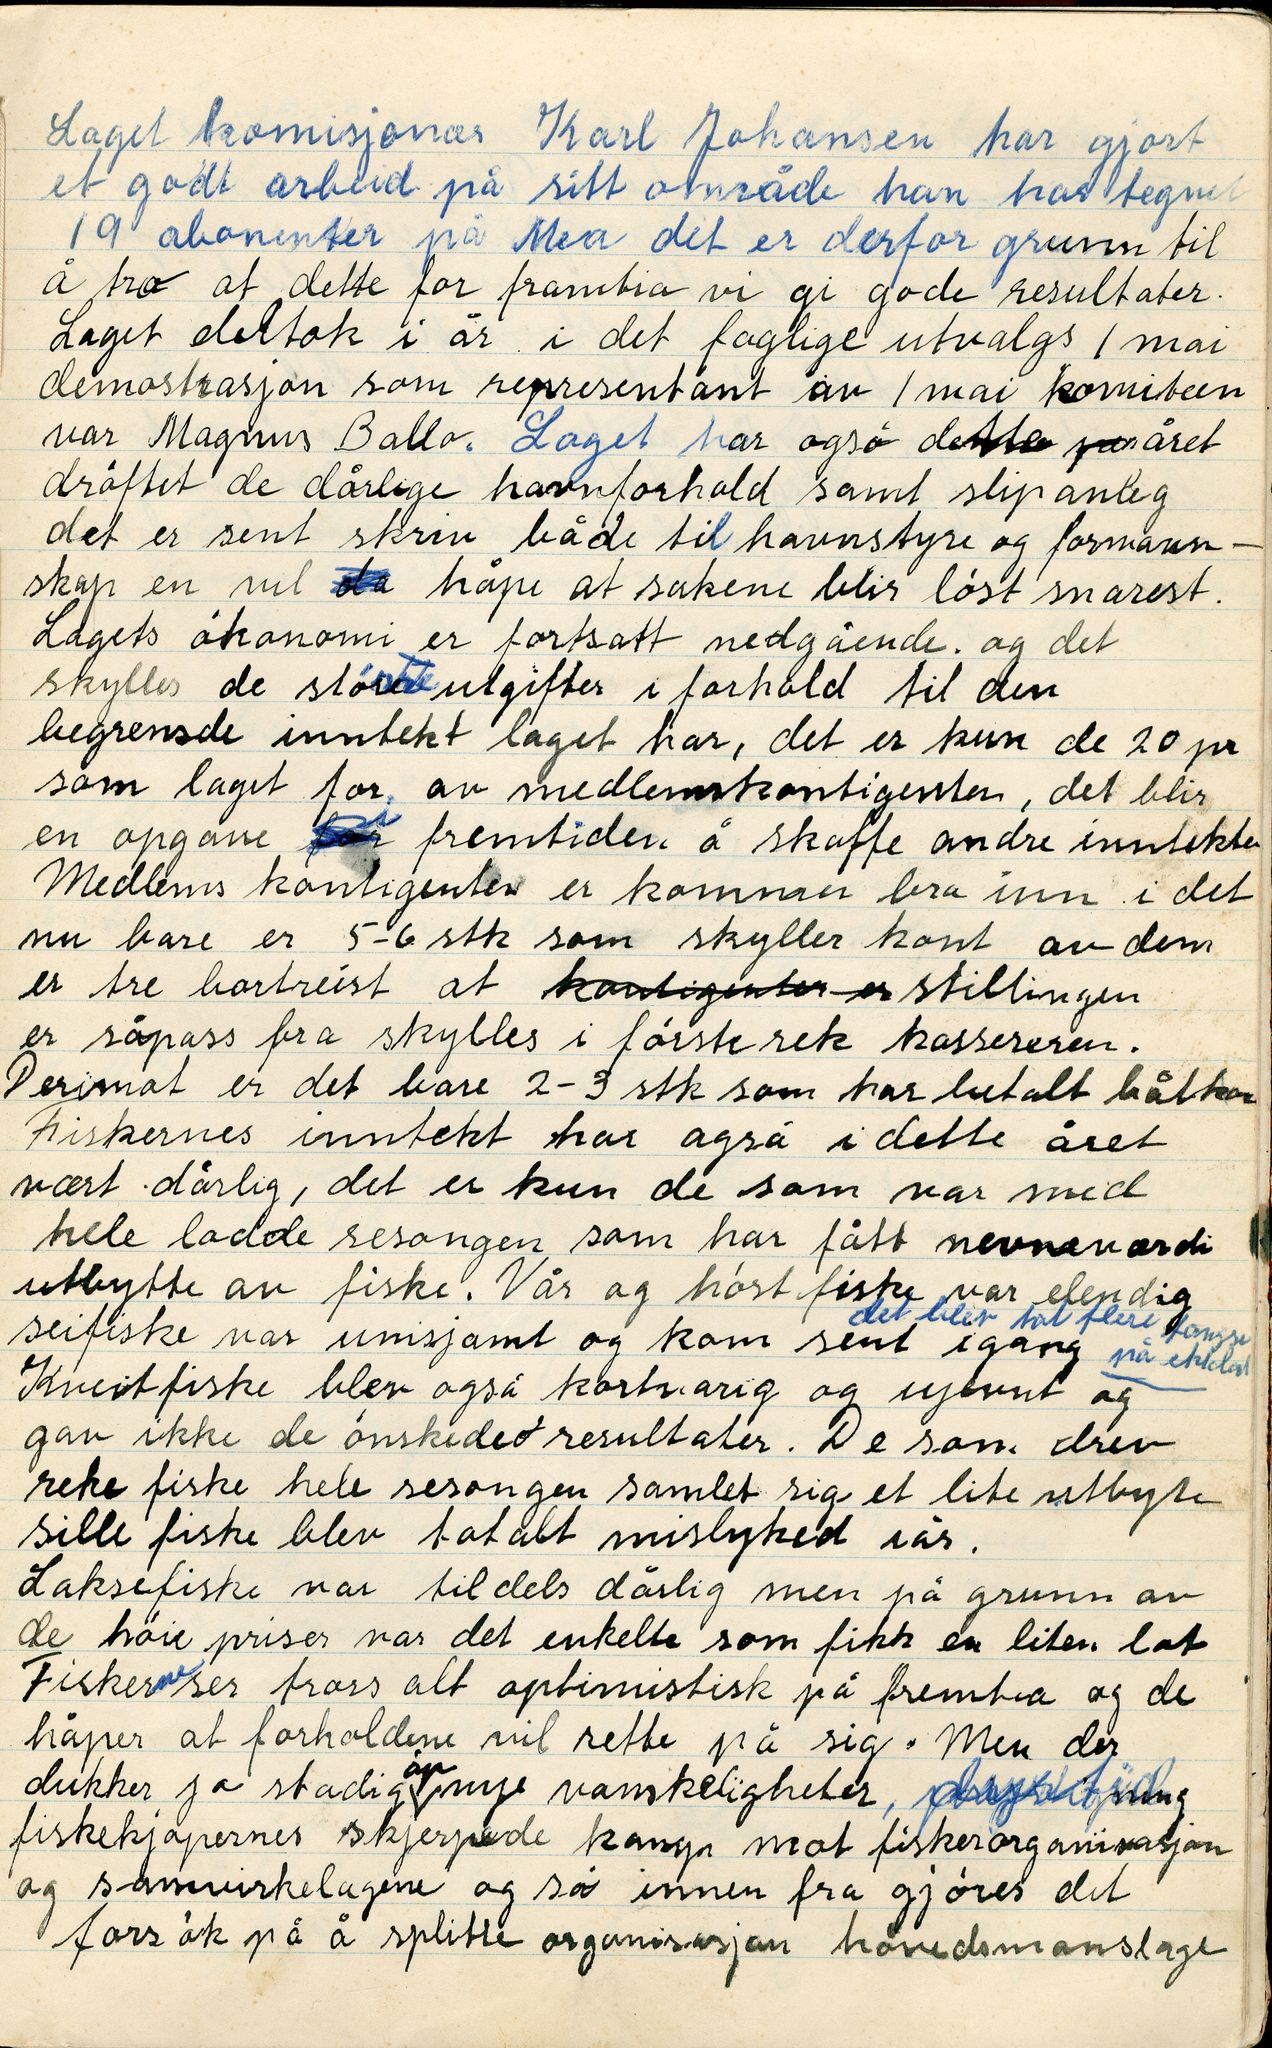 Laget komisjonær Karl Johansen har gjort
et godt arbeid på sitt område han har tegnet
19 abonenter på Mea det er derfor grunn til
å tro at dette for framtia vi gi gode resultater.
Laget deltok i år i det faglige utvalgs 1 mai
demostrasjon som representant av 1 mai komiteen
var Magnus Ballo. Laget har også dette året
dróftet de dårlige havnforhold samt slipanleg
det er sent skriv både til havnstyre og formann-
skap en vil da håpe at sakene blir lóst snarest.
Lagets ókonomi er fortsatt nedgående. og det
skylles de stóre utgifter i forhold til den
begrensde inntekt laget har, det er kun de 20 pr
som laget for av medlemskontigenten, det blir
en opgave for i fremtiden å skaffe andre inntekter
Medlems kontigenten er kommen bra inn i det
nu bare er 5-6 stk som skyller kont av dem
er tre bortreist at kontigenter er stillingen
er såpass bra skylles i fórste rek kassereren.
Derimot er det bare 2-3 stk som har betalt båtkon
Fiskernes inntekt har også i dette året
vært dårlig, det er kun de som var med
hele lodde sesongen som har fått nevneværdi
utbytte av fiske. Vår og hóst fiske var elendig
seifiske var umisjamt og kom sent igang det blev tat flere fangse på ekkelod
Kveitfiske blev også kortvarig og ujevnt og
gav ikke de ónskede resultater. De som drev
reke fiske hele sesongen samlet sig et lite utbyte
sille fiske blev totalt mislyked iår.
Laksefiske var tildels dårlig men på grunn av
de hóie priser var det enkelte som fikk en liten lot
Fiskerne ser tross alt optimistisk på fremtia og de
håper at forholdene vil rette på sig. Men der
dukker jo stadig op nye vanskeligheter,
fiskekjøpernes skjerpede kamp mot fiskerorganisasjon
og samvirkelagene og så innen fra gjóres det
forsók på å splitte organisasjon hóvedsmanslage